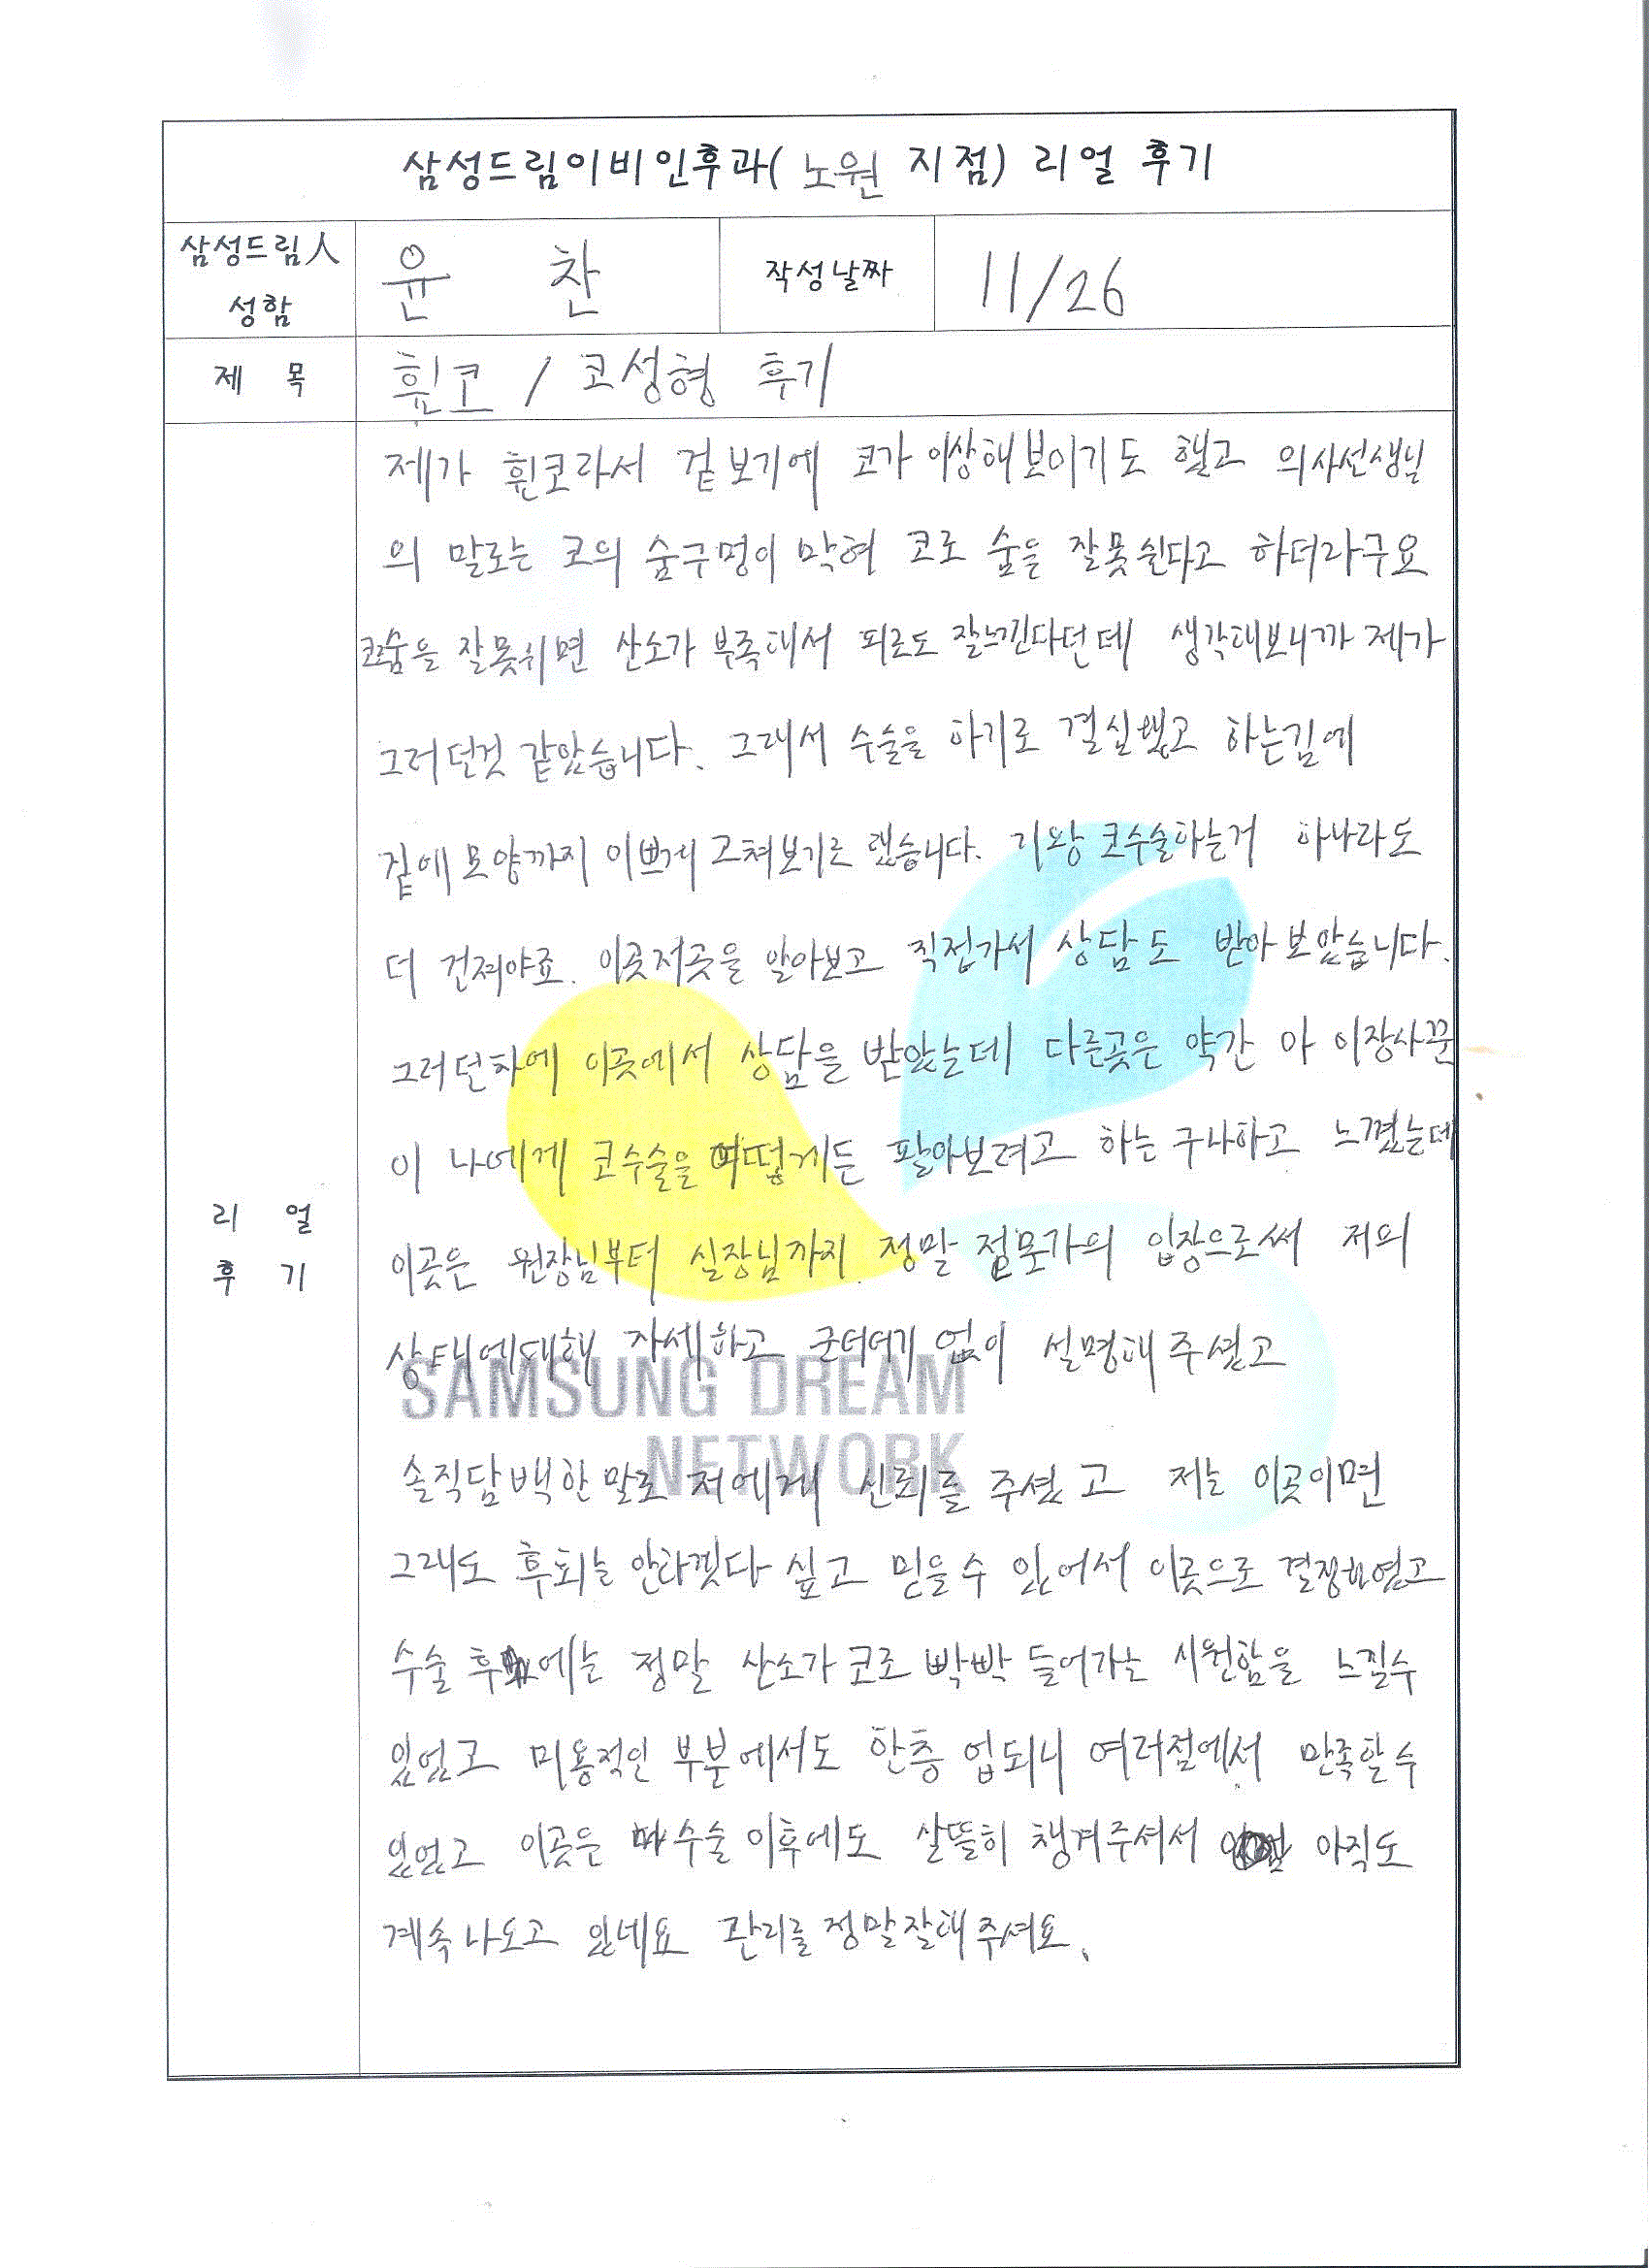 삼성드림이비인후과( 노원 지점) 리얼 후기
삼성드림人
성함
윤 찬
작성날짜
11/26
제 목
휜코 / 코성형 후기
제가 휜코라서 겉보기에 코가 이상해보이기도 했고 의사선생님
의 말로는 코의 숨구멍이 막혀 코로 숨을 잘못쉰다고 하더라구요
코숨을 잘못쉬면 산소가 부족해서 피로도 잘느낀다던데 생각해보니까 제가
그러던것 같았습니다. 그래서 수술을 하기로 결심했고 하는김에
겉에 모양까지 이쁘게 고쳐보기로 했습니다. 기왕 코수술하는거 하나라도
더 건져야죠. 이곳저곳을 알아보고 직접가서 상담도 받아보았습니다.
그러던차에 이곳에서 상담을 받았는데 다른곳은 약간 아 이장사꾼
이 나에게 코수술을 어떻게든 팔아보려고 하는구나하고 느꼈는데
이곳은 원장님부터 실장님까지 정말 전문가의 입장으로써 저의
상태에대해 자세하고 군더더기 없이 설명해주셨고
솔직담백한 말로 저에게 신뢰를 주셨고 저는 이곳이면
그래도 후회는 안하겠다 싶고 믿을수 있어서 이곳으로 결정하였고
수술 후에는 정말 산소가 코로 빡빡 들어가는 시원함을 느낄수
있었고 미용적인 부분에서도 한층 업되니 여러점에서 만족할수
있었고 이곳은 수술이후에도 살뜰히 챙겨주셔서 아직도
계속나오고 있네요 관리를 정말잘해주셔요.
리 얼
후 기
SAMSUNG DREAM
NETWORK